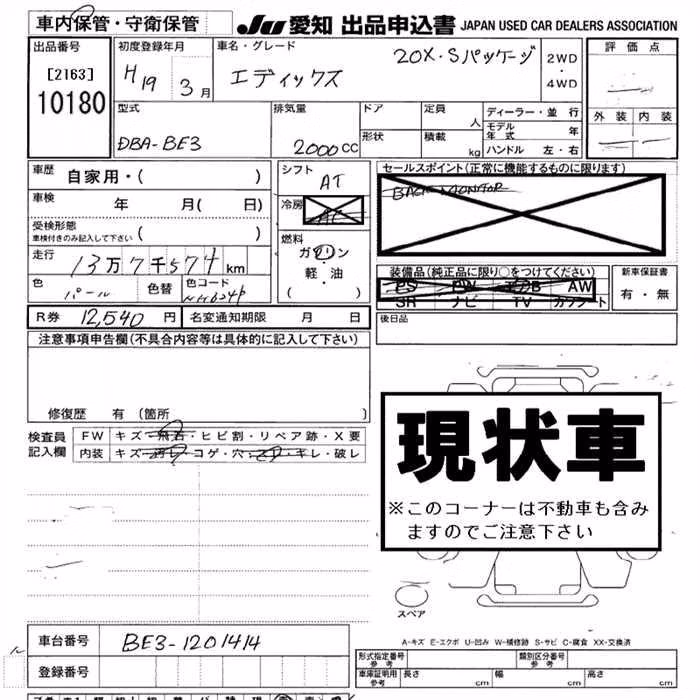 車内保管・守衛保管 JU 愛知 出品申込書 JAPAN USED CAR DEALERS ASSOCIATION
出品番号 [2163] 10180
初度登録年月 H19 3月
車名・グレード エディックス 20X・Sパッケージ
2WD・4WD
評価点
外装 内装
型式 DBA-BE3
排気量 2000cc
ドア 形状
定員 人
積載 kg
ディーラー・並行
モデル年式 年
ハンドル 左・右
車歴 自家用・( )
車検 年 月( 日)
受検形態 車検付きのみ記入して下さい ( )
走行 13万7千574km
色 パール 色替 色コード
シフト AT
冷房 AC
燃料 ガソリン・軽・油 ( )
セールスポイント(正常に機能するものに限ります)
BACK MONITOR
装備品(純正品に限り○をつけてください)
PS PW エアB AW
SR ナビ TV カワシート
新車保証書 有・無
R券 12,540円 名変通知期限 月 日
後日品
注意事項申告欄(不具合内容等は具体的に記入して下さい)
修復歴 有 (箇所 )
検査員記入欄
FW キズ・飛石・ヒビ割・リペア跡・X要
内装 キズ・汚レ・コゲ・穴・・キレ・破レ
現状車
※このコーナーは不動車も含み
ますのでご注意下さい
スペア
A-キズ E-エクボ U-凹み W-補修跡 S-サビ C-腐食 XX-交換済
車台番号 BE3-1201414
登録番号
形式指定番号 参考 類別区分番号 参考
車庫証明用 参考 長さ cm 幅 cm 高さ cm